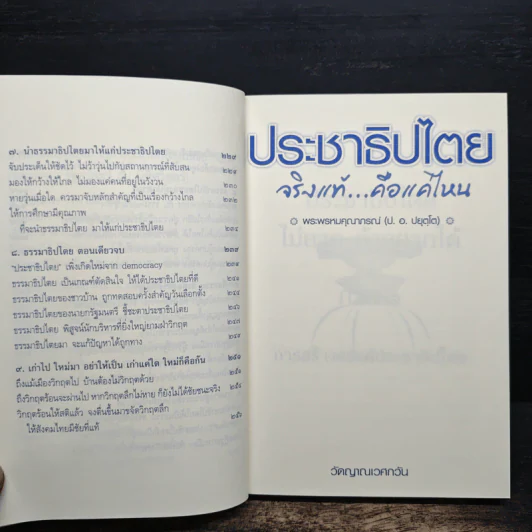 ๗. นำธรรมาธิปไตยมาให้แก่ประชาธิปไตย ๒๒๙
จับประเด็นให้ชัดไว้ ไม่ว้าวุ่นไปกับสถานการณ์ที่สับสน
มองให้กว้างให้ไกล ไม่มองแค่คนที่อยู่ในวังวน
หายวุ่นเมื่อใด ควรมาจับหลักสำคัญที่เป็นเรื่องกว้างไกล
ให้การศึกษามีคุณภาพ
ที่จะนำธรรมาธิปไตย มาให้แก่ประชาธิปไตย
๘. ธรรมาธิปไตย ตอนเดียวจบ
"ประชาธิปไตย" เพิ่งเกิดใหม่จาก democracy
ธรรมาธิปไตย เป็นเกณฑ์ตัดสินใจ ให้ได้ประชาธิปไตยที่ดี
ธรรมาธิปไตยของชาวบ้าน ถูกทดสอบครั้งสำคัญวันเลือกตั้ง
ธรรมาธิปไตยของนายกรัฐมนตรี ชี้ชะตาประชาธิปไตย
ธรรมาธิปไตย พิสูจน์นักบริหารที่ยิ่งใหญ่ยามฝ่าวิกฤต
ธรรมาธิปไตยมา จะแก้ปัญหาได้ถูกทาง
๙. เก่าไป ใหม่มา อย่าให้เป็น เก่าแค่ใด ใหม่ก็คือกัน ๒๕๑
ถึงแม้เมืองวิกฤตไป บ้านต้องไม่วิกฤตด้วย
ถึงวิกฤตร้อนจะผ่านไป หากวิกฤตลึกไม่หาย ก็ยังไม่ได้ชัยชนะจริง
วิกฤตร้อนให้สติแล้ว จงตื่นขึ้นมาขจัดวิกฤตลึก
ให้สังคมไทยมีชัยที่แท้
ประชาธิปไตย
จริงแท้...คือแค่ไหน
พระพรหมคุณาภรณ์ (ป. อ. ปยุตฺโต)
วัดญาณเวศกวัน